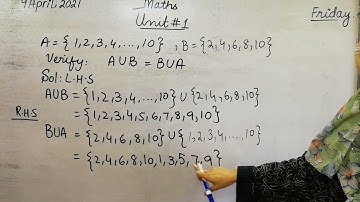 9 April 2021 Maths Friday
Unit #1
A = {1,2,3,4,...,10} , B = {2,4,6,8,10}
Verify: A∪B = B∪A
Sol: L.H.S
A∪B = {1,2,3,4,...,10} ∪ {2,4,6,8,10}
= {1,2,3,4,5,6,7,8,9,10}
R.H.S
B∪A = {2,4,6,8,10} ∪ {1,2,3,4,...,10}
= {2,4,6,8,10,1,3,5,7,9}